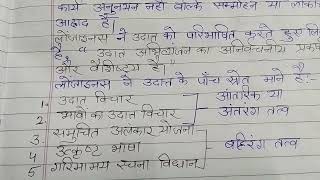 कार्य अनुनयन नहीं बल्कि सम्मोहन या लोकोत्तर
आह्लाद है।
लोंजाइनस ने उदात्त को परिभाषित करते हुए लि
है "उदात्त अभिव्यंजना का अनिर्वचनीय प्रकर्ष
और वैशिष्ट्य है"
लोंजाइनस ने उदात्त के पाँच स्रोत माने हैं:-
1. उदात्त विचार
2. भावों का उदात्त विचार
आंतरिक या
अंतरंग तत्व
3. समुचित अलंकार योजना
4. उत्कृष्ट भाषा
5. गरिमामय रचना विधान
बहिरंग तत्व